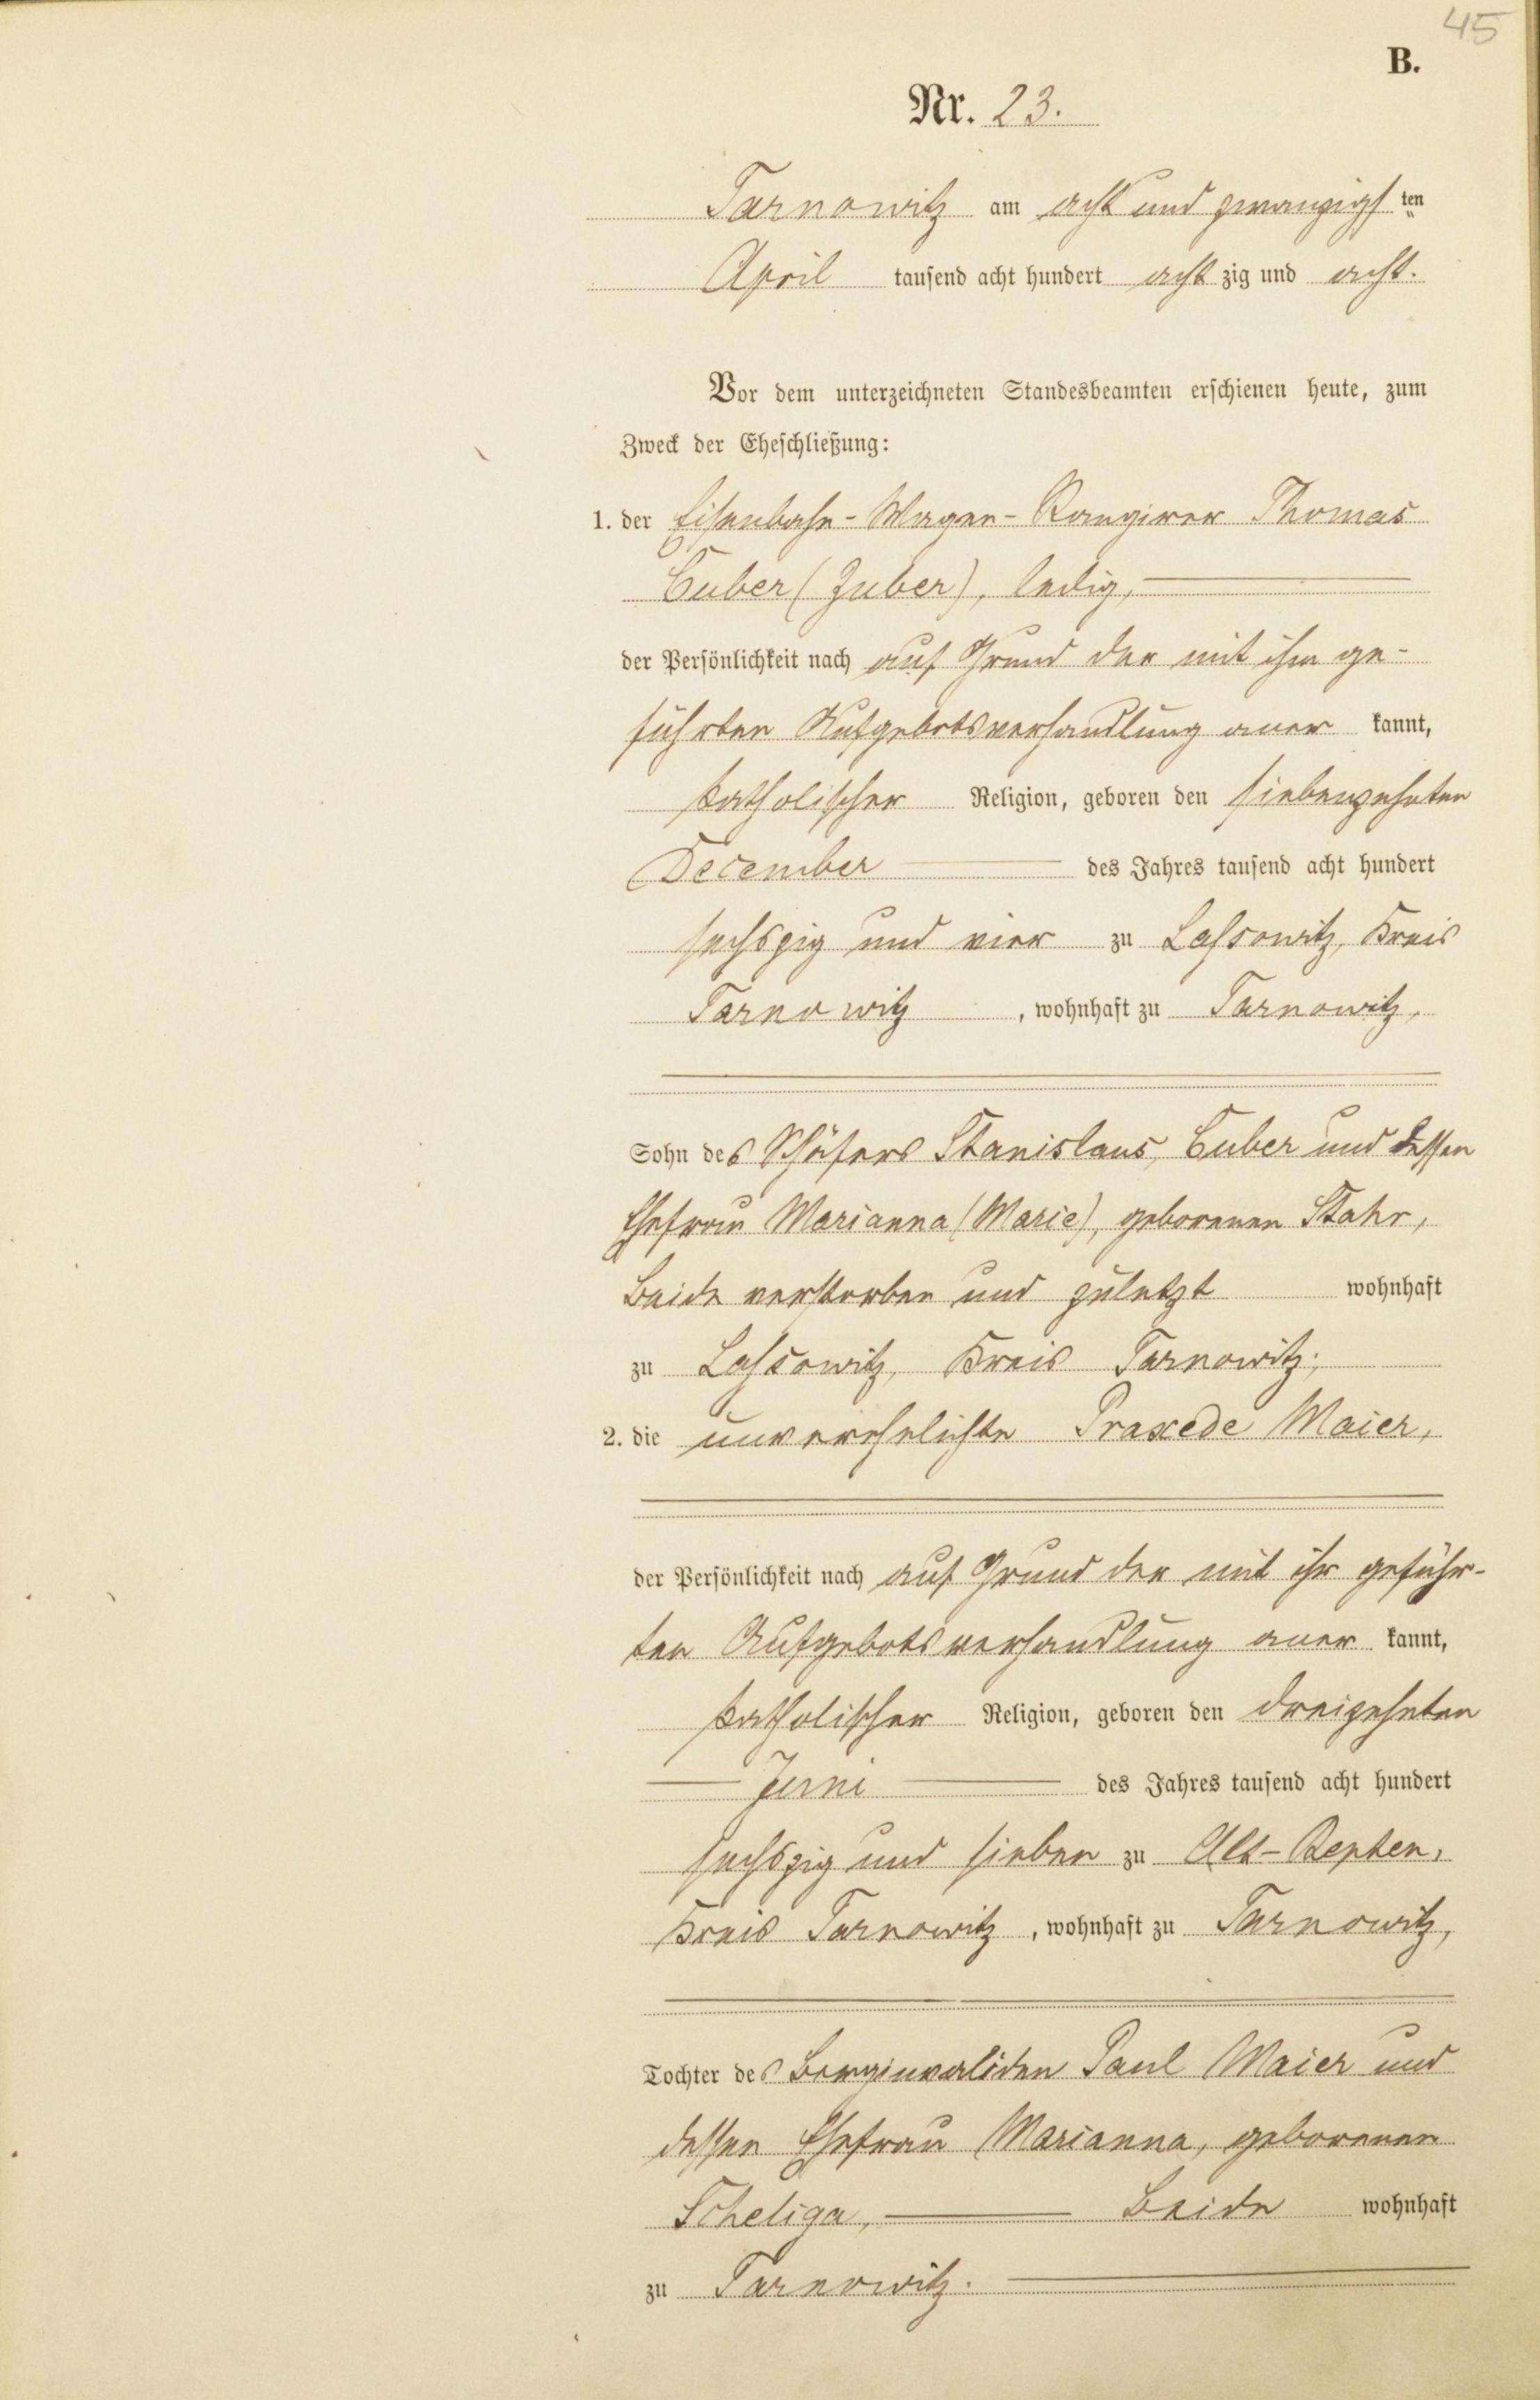 45
B.
Nr. 23.
Tarnowitz am acht und zwanzigsten
April tausend acht hundert achtzig und acht.
Vor dem unterzeichneten Standesbeamten erschienen heute, zum
Zweck der Eheschließung:
1. der Eisenbahn-Wagen-Rangirer Thomas
Cuber (Zuber), ledig,
der Persönlichkeit nach auf Grund der mit ihm ge-
führten Aufgebotsverhandlung aner kannt,
katholischer Religion, geboren den siebenzehnten
December des Jahres tausend acht hundert
sechszig und vier zu Lassowitz, Kreis
Tarnowitz, wohnhaft zu Tarnowitz,
Sohn des Schäfers Stanislaus Cuber und dessen
Ehefrau Marianna (Marie), geborenen Stahr,
Beide verstorben und zuletzt wohnhaft
zu Lassowitz, Kreis Tarnowitz;
2. die unverehelichte Praxede Maier,
der Persönlichkeit nach auf Grund der mit ihr geführ-
ten Aufgebotsverhandlung aner kannt,
katholischer Religion, geboren den dreizehnten
Juni des Jahres tausend acht hundert
sechszig und sieben zu Alt-Repten,
Kreis Tarnowitz, wohnhaft zu Tarnowitz,
Tochter des Berginvaliden Paul Maier und
dessen Ehefrau Marianna, geborenen
Scheliga, Beide wohnhaft
zu Tarnowitz.